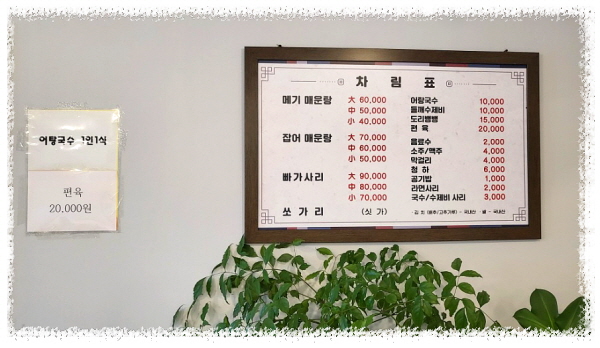 차림표
메기 매운탕 大 60,000
中 50,000
小 40,000
잡어 매운탕 大 70,000
中 60,000
小 50,000
빠가사리 大 90,000
中 80,000
小 70,000
쏘가리 (싯가)
어탕국수 10,000
들깨수제비 10,000
도리뱅뱅 15,000
편육 20,000
음료수 2,000
소주/맥주 4,000
막걸리 4,000
청하 6,000
공기밥 1,000
라면사리 2,000
국수/수제비 사리 3,000
김치 (배추/고추가루) - 국내산 · 쌀 - 국내산
어탕국수 1인1식
편육
20,000원